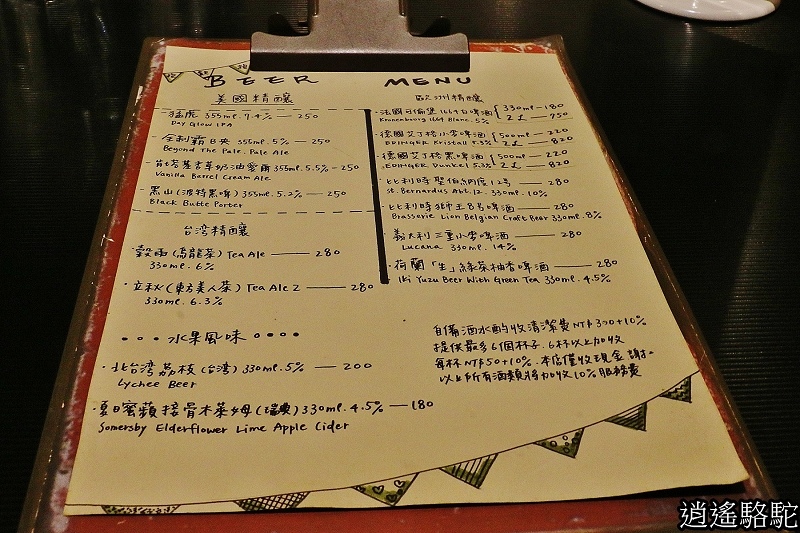 BEER MENU
美國精釀
猛虎 355ml. 7.4% — 250
Day Glow IPA
全制霸 B央 355ml. 5% — 250
Beyond The Pale. Pale Ale
香草奶油愛爾 355ml. 5.5% — 250
Vanilla Barrel Cream Ale
黑山 (波特黑啤) 355ml. 5.2% — 250
Black Butte Porter
台湾精釀
穀雨 (烏龍茶) Tea Ale — 280
330ml. 6%
立秋 (東方美人茶) Tea Ale 2 — 280
330ml. 6.3%
水果風味
北台湾荔枝 (台湾) 330ml. 5% — 200
Lychee Beer
夏日蜜蘋接骨木萊姆 (瑞典) 330ml. 4.5% — 180
Somersby Elderflower Lime Apple Cider
歐洲精釀
法國可倫堡 1664白啤酒 330ml — 180
Kronenbourg 1664 Blanc. 5% 2L — 750
德國艾丁格小麥啤酒 500ml — 220
EDINGER Kristall 5.3% 2L — 820
德國艾丁格黑啤酒 500ml — 220
EDINGER Dunkel 5.3% 2L — 820
比利時聖伯納店12号 — 280
St. Bernardus Abt. 12. 330ml. 10%
比利時獅王8号啤酒 — 280
Brasserie Lion Belgian Craft Beer 330ml. 8%
義大利三重小麥啤酒 — 280
Lucana 330ml. 14%
荷蘭「生」綠茶柚香啤酒 — 280
Iki Yuzu Beer With Green Tea 330ml. 4.5%
自備酒水酌收清潔費NT$300+10%
提供最多6個杯子. 6杯以上加收
每杯NT$50+10%. 本店僅收現金 謝謝
以上所有酒類將加收10%服務費
逍遙駱駝